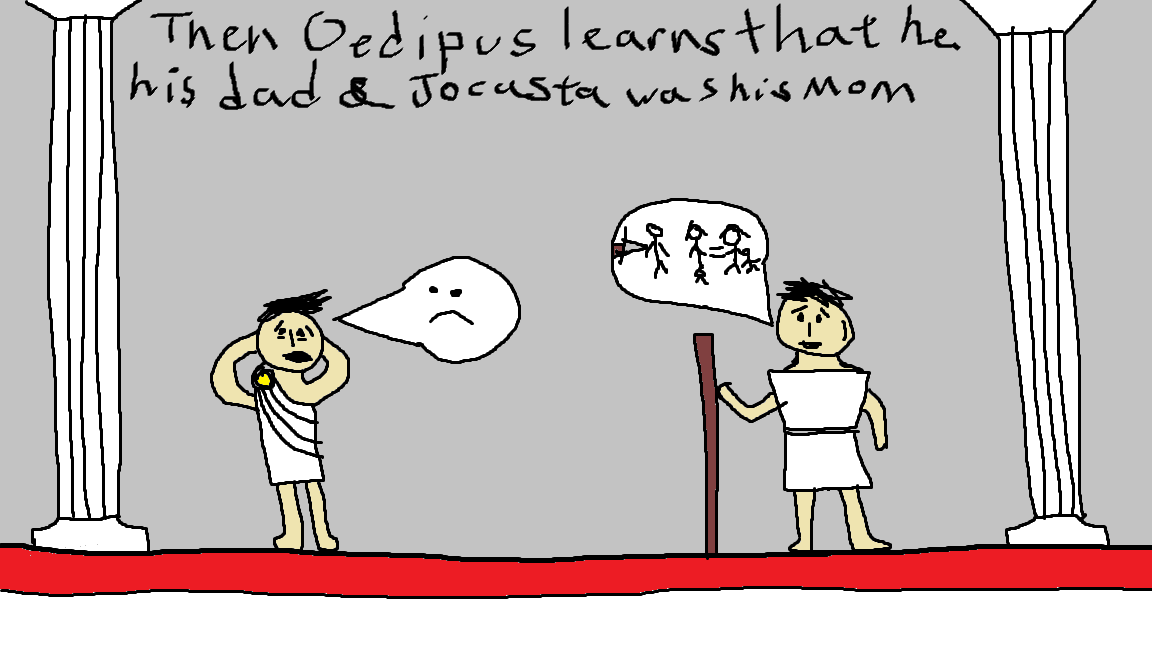 Then Oedipus learns that he
his dad & Jocasta was his Mom